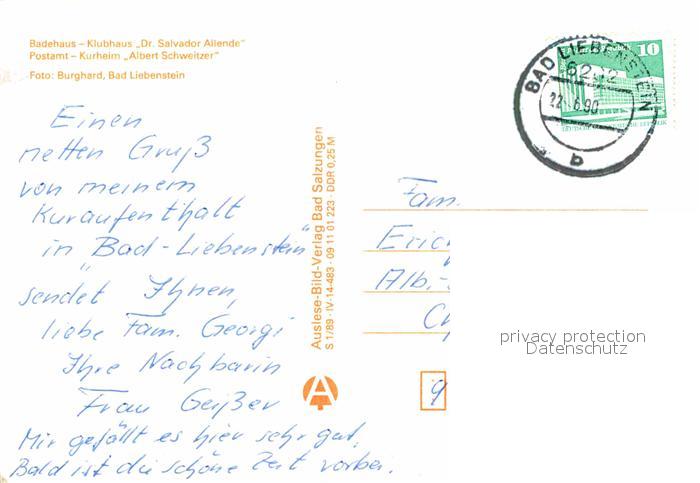 Badehaus – Klubhaus „Dr. Salvador Allende"
Postamt – Kurheim „Albert Schweitzer"
Foto: Burghard, Bad Liebenstein
Einen
netten Gruß
von meinem
Kuraufenthalt
in "Bad-Liebenstein"
sendet Ihnen,
liebe Fam. Georgi
Ihre Nachbarin
Frau Geißer
Mir gefällt es hier sehr gut,
Bald ist die schöne Zeit vorbei.
Auslese-Bild-Verlag Bad Salzungen
S 1/89 · IV-14-483 · 09 11 01 223 · DDR 0,25 M
A
BAD LIEBENSTEIN
6202
22. 6.90
b
10
Fam.
Eric
Alb.-
Ch
9
privacy protection
Datenschutz